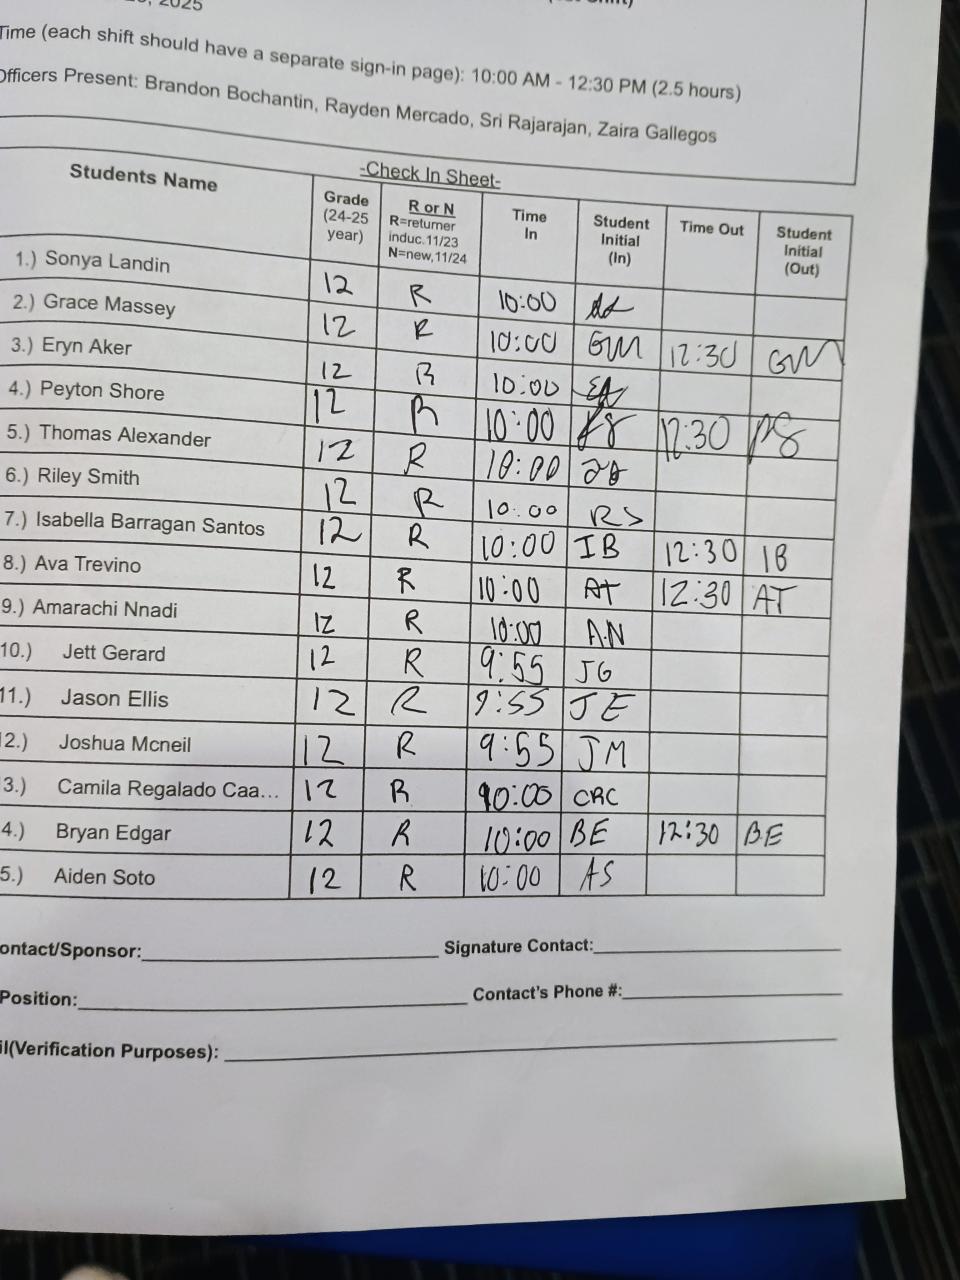 2025
Time (each shift should have a separate sign-in page): 10:00 AM - 12:30 PM (2.5 hours)
Officers Present: Brandon Bochantin, Rayden Mercado, Sri Rajarajan, Zaira Gallegos
-Check In Sheet-
Students Name Grade (24-25 year) R or N R=returner induc.11/23 N=new,11/24 Time In Student Initial (In) Time Out Student Initial (Out)
1.) Sonya Landin 12 R 10:00
2.) Grace Massey 12 R 10:00 GM 12:30 GM
3.) Eryn Aker 12 R 10:00 EA
4.) Peyton Shore 12 R 10:00 PS 12:30 PS
5.) Thomas Alexander 12 R 10:00
6.) Riley Smith 12 R 10:00 RS
7.) Isabella Barragan Santos 12 R 10:00 IB 12:30 IB
8.) Ava Trevino 12 R 10:00 AT 12:30 AT
9.) Amarachi Nnadi 12 R 10:00 A.N
10.) Jett Gerard 12 R 9:55 JG
11.) Jason Ellis 12 R 9:55 JE
2.) Joshua Mcneil 12 R 9:55 JM
3.) Camila Regalado Caa... 12 R 10:00 CRC
4.) Bryan Edgar 12 R 10:00 BE 12:30 BE
5.) Aiden Soto 12 R 10:00 AS
ontact/Sponsor: Signature Contact:
Position: Contact's Phone #:
il(Verification Purposes):